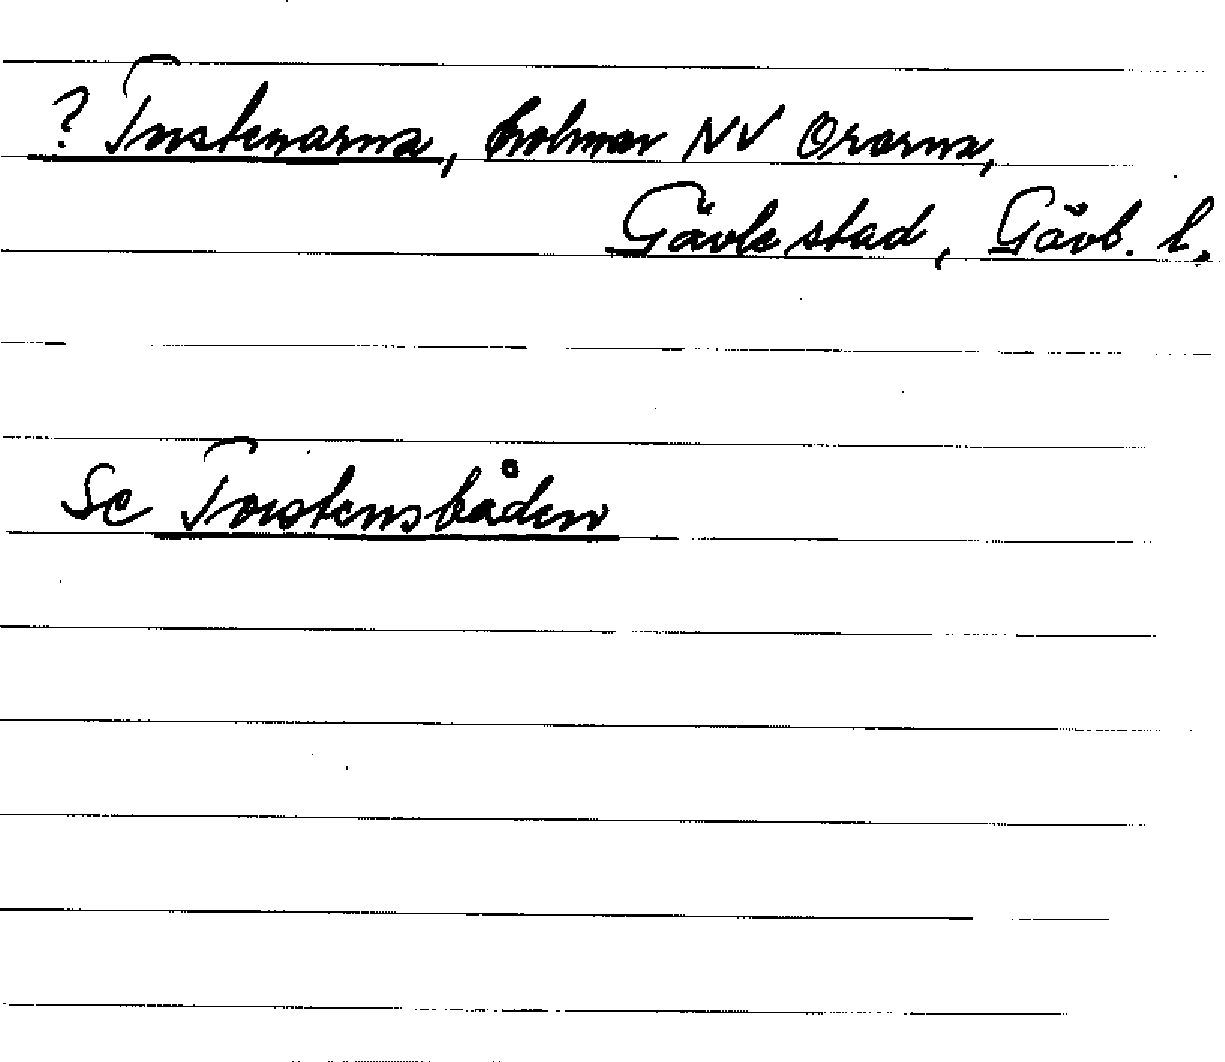 ? Torstenarna, holmar NV Orarna,
Gävle stad, Gävb. l.
Se Torstensbåden